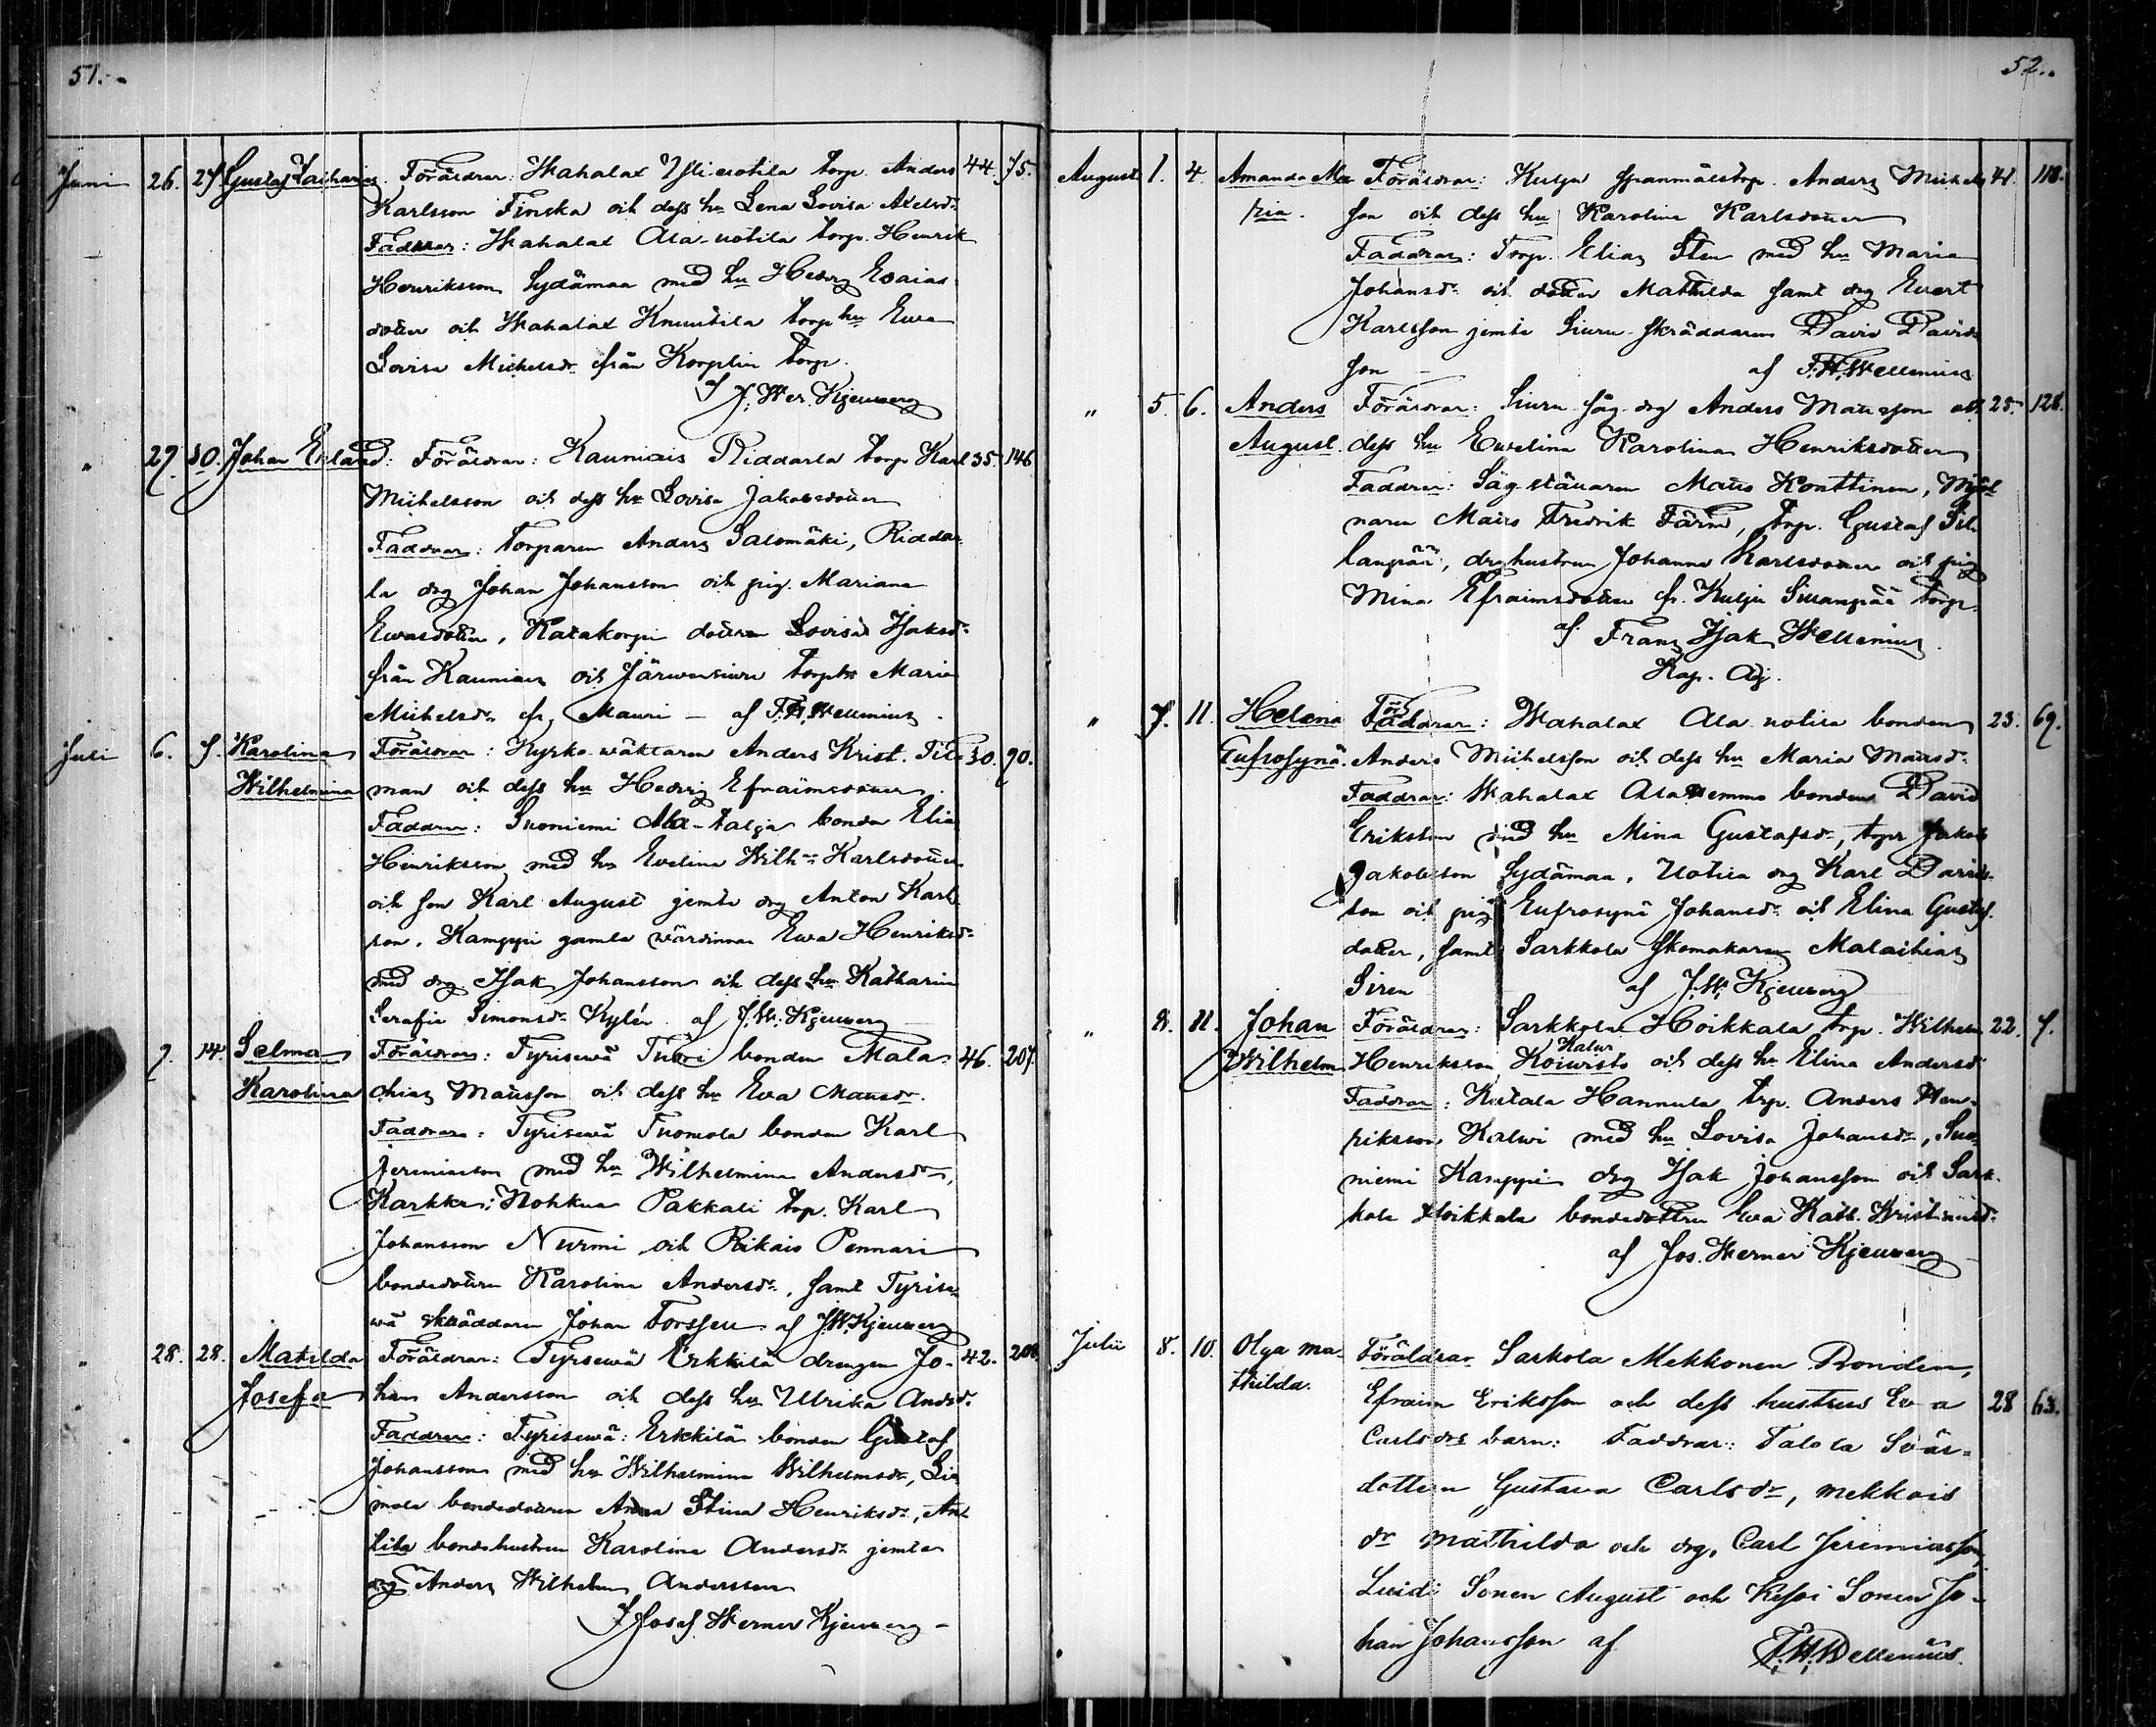 51.
Juni 26. 27. Gustaf Zacharias. Föräldrar: Wahalax Yli-uotila torp. Anders 44. 75.
Karlsson Finska och dess hu Lena Lovisa Axelsdr
Faddrar: Wahalax Ala-uotila torp. Henrik
Henriksson Sydämaa med hu Hedvig Esaias
dotter och Wahalax Knuutila torp hu Eva
Lovisa Michelsdr från torp.
J. Wer. Kjellberg
" 27. 30. Johan Erland: Föräldrar: Kauniais Riddarla torp Karl 35. 146
Michelsson och dess hu Lovisa Jakobsdotter
Faddrar: torparen Anders Salomäki, Riddar-
la drg Johan Johansson och pig. Mariana
Evasdotter, Katakorpi dottren Lovisa Isaksdr
från Kauniais och torphu Maria
Michelsdr fr. Mauri — af F. I. Wellenius.
Juli 6. 7. Karolina Föräldrar: Kyrko-wäktaren Anders Krist. Till- 30. 90.
Wilhelmina man och dess hu Hedvig Efraimsdotter.
Faddrar: Suoniemi Ala-talja bonden Elias
Henriksson med hu Evelina Wilh:na Karlsdotter
och son Karl August jemte drg Anton Karls-
son. Kamppi gamla wärdinnan Eva Henriksdr
med drg. Isak Johansson och dess hu Katharina
Serafia Simonsdr Kylén. af J. W. Kjellberg
" 9. 14. Selma Föräldrar: Tyrisewä Tuori bonden Mala- 46. 207.
Karolina chias Mattsson och dess hu Eva Mattsdr.
Faddrar: Tyrisewä Tuomola bonden Karl
Jeremiasson med hu Wilhelmina Andersdr,
Karkku: Nohkua Pakkali torp. Karl
Johansson Nurmi och Rikais Pennari
bondedottren Karolina Andersdr, samt Tyrise-
wä skräddaren Johan Forssell af J. W. Kjellberg
" 28. 28. Matilda Föräldrar: Tyrisewä Erkkilä drengen Jo- 42. 208.
Josefa han Andersson och dess hu Ulrika Andrsdr.
Faddrar: Tyrisewä: Erkkilä bonden Gustaf
Johansson med hu Wilhelmina Wilhelmsdr,
bondedottren Anna Stina Henriksdr, Ant-
tila bondehustrun Karolina Andersdr jemte
drg Anders Wilhelm Andersson
Josef Werner Kjellberg —
52.
August 1. 4. Amanda Ma- Föräldrar: Kulju spanmålstorp. Anders Michels- 41. 118.
ria. son och dess hu Karolina Karlsdotter
Faddrar: Torp. Elias Sten med hu Maria
Johansdr och dotter Mathilda samt drg Evert
Karlsson jemte Siuru skräddaren David Davids-
son — af F. I. Wellenius
" 5. 6. Anders Föräldrar: Siuru såg-drg Anders Mattsson och 25. 128.
August. dess hu Evelina Karolina Henriksdotter
Faddrar: Såg-ställaren Matts Konttinen, Mjöl-
naren Matts Fredrik Färm, torp. Gustaf Sil-
lanpää, drg hustrun Johanna Karlsdotter och pig
Mina Efraimsdotter fr. Kulju Sillanpää torp.
af Frans Isak Wellenius.
Kap. Adj.
" 7. 11. Helena Föräldrar: Wahalax Ala-uotila bonden 23. 69.
Eufrosynä. Anders Michelsson och dess hu Maria Mattsdr
Faddrar: Wahalax Ala bonden David
Eriksson med hu Mina Gustafsdr, torp Jakob
Jakobsson Sydämaa, Uotila drg Karl Davids-
son och pig Eufrosynä Johansdr och Elina Gustaf.
dotter, samt Sarkkola skomakaren Malachias
Siren af J. W. Kjellberg
" 8. 11. Johan Föräldrar: Sarkkola Hoikkala torp. Wilhelm 22. 7.
Wilhelm Henriksson Koiwisto och dess hu Elina Andersdr
Faddrar: Kutala Hannula torp. Anders Hen-
riksson Kalwi med hu Lovisa Johansdr, Suo-
niemi Kamppi drg Isak Johansson och Sark-
kola Hoikkala bondedottren Eva Kath. Kristiansdr.
af Jos. Werner Kjellberg —
Julii 8. 10. Olga Ma- Föräldrar Sarkola Mekkonen Bonden,
thilda. Efraim Eriksson och dess hustrus Eva 28 63.
Carlsdrs barn: Faddrar: Talola Svär-
dottern Gustava Carlsdr, Mekkois
dr Mathilda och drg. Carl Jeremiasson,
Luidi Sonen August och Sonen Jo-
han Johansson af F. I. Wellenius.